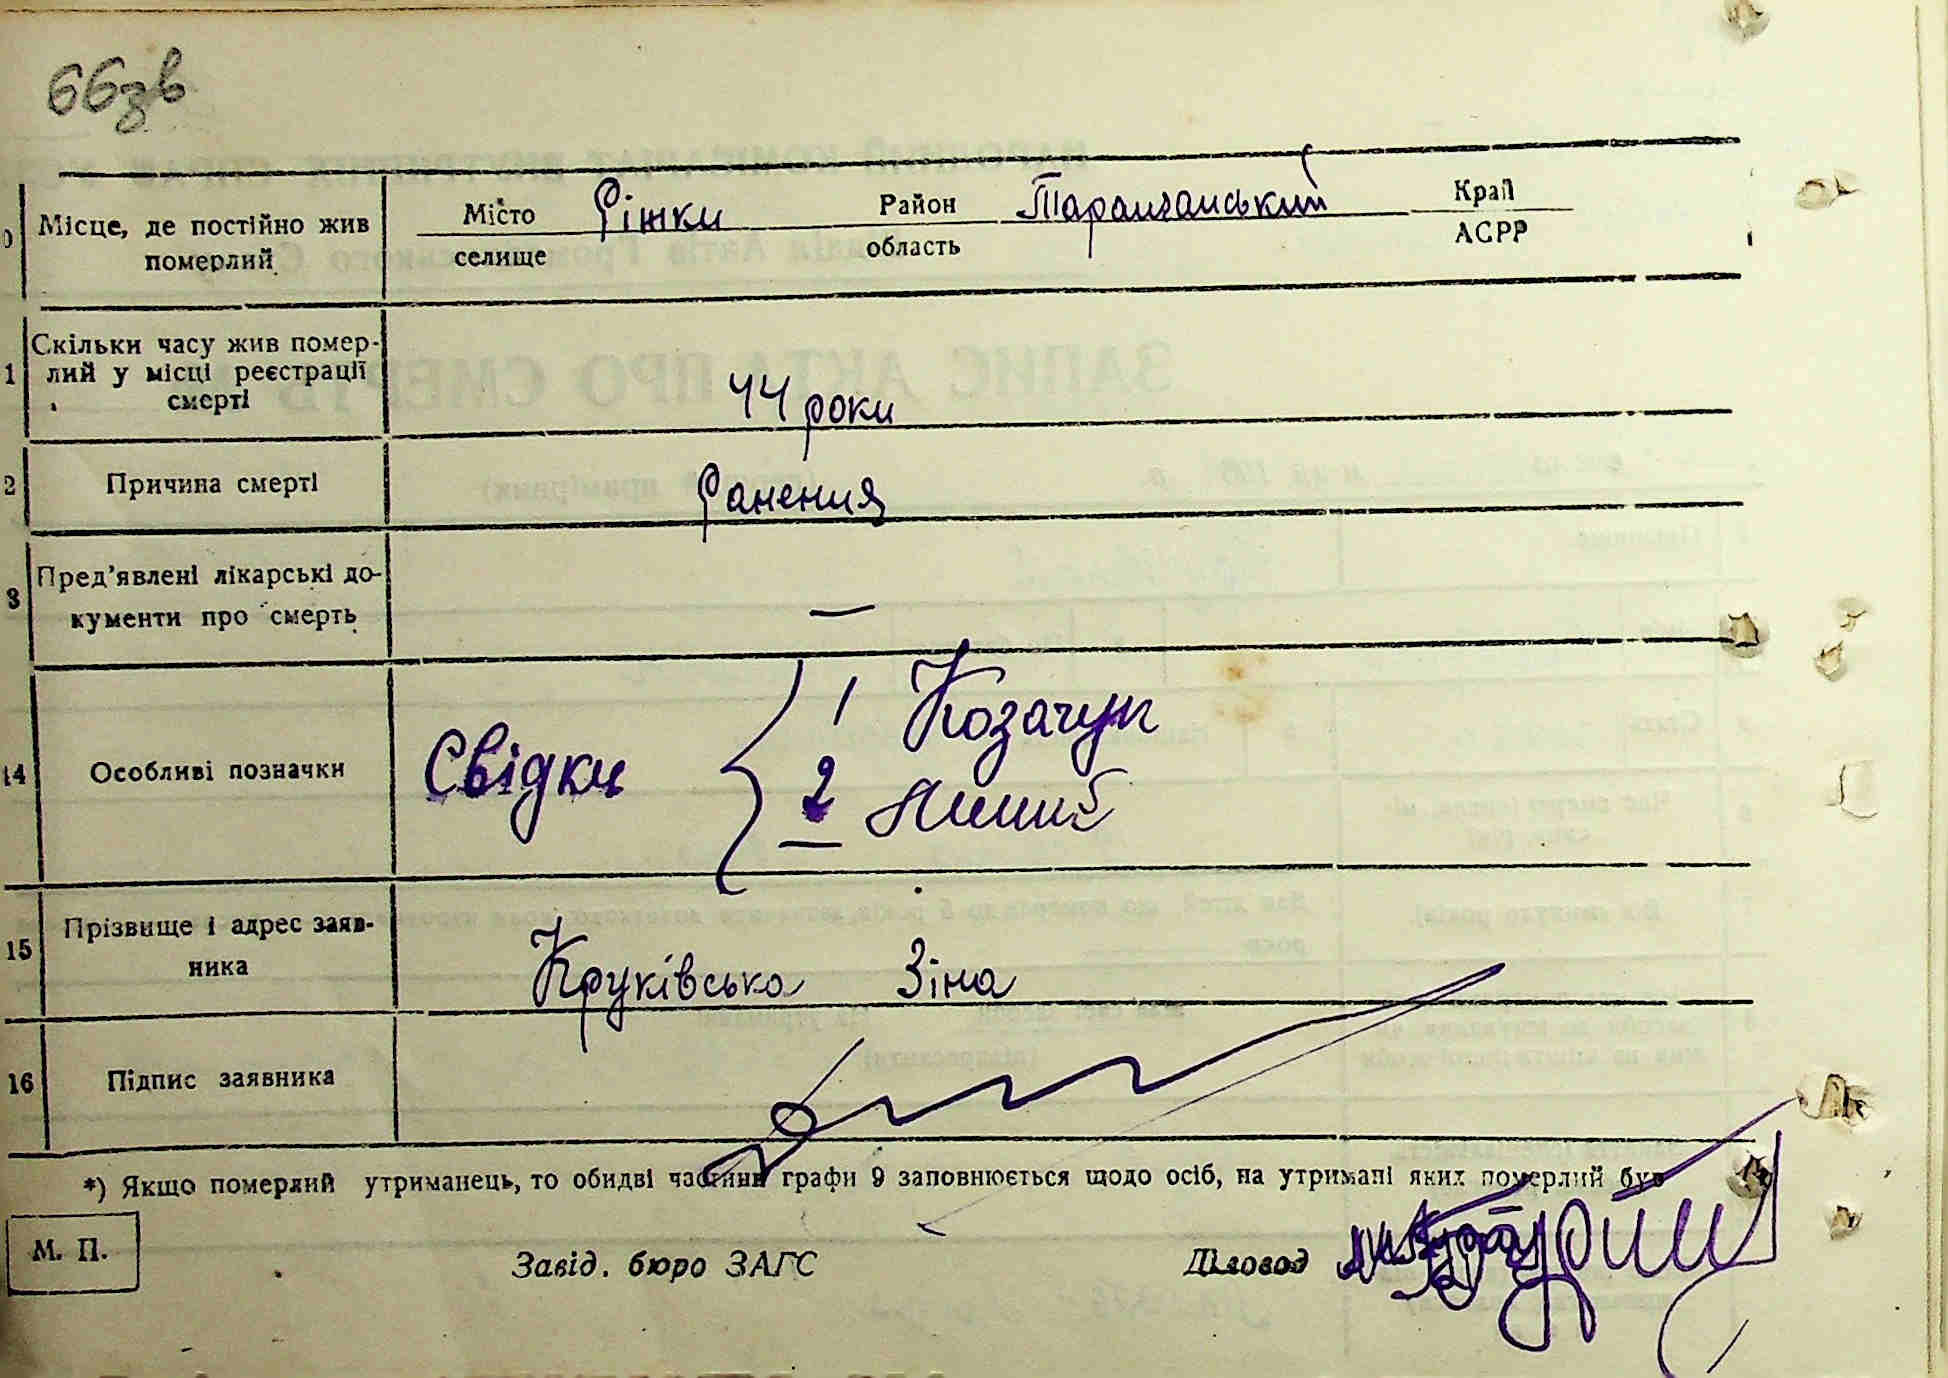 66зв
0 Місце, де постійно жив померлий
Місто Ріжки Район Таращанський Край
селище область АСРР
1 Скільки часу жив помер-
лий у місці реєстрації
смерті
44 роки
2 Причина смерті Ранения
3 Пред’явлені лікарські до-
кументи про смерть —
14 Особливі позначки Свідки
1 Козачук
2
15 Прізвище і адрес заяв-
ника
Круківська Зіна
16 Підпис заявника
*) Якщо померлий утриманець, то обидві частини графи 9 заповнюється щодо осіб, на утримані яких померлий був
М. П. Завід. бюро ЗАГС Діловод